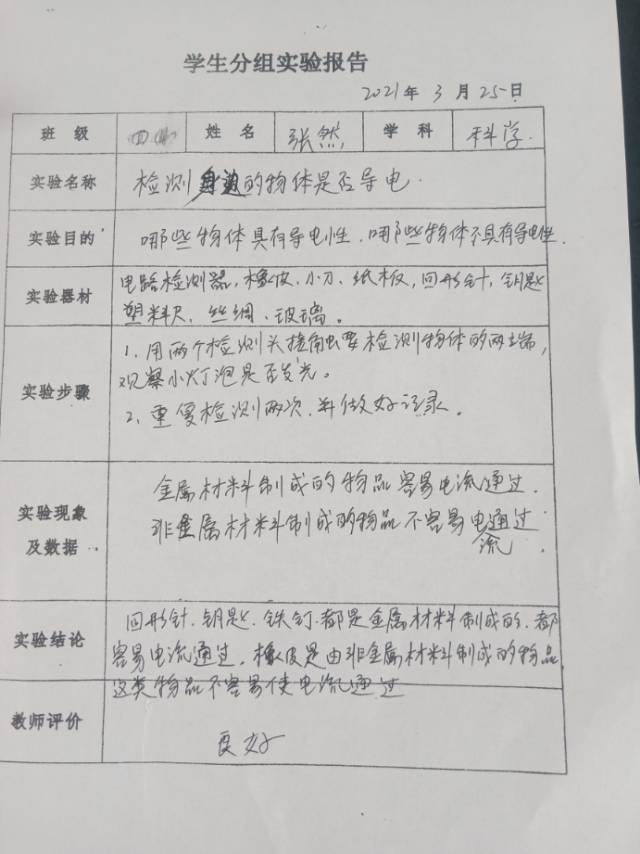 学生分组实验报告
2021年 3 月 25日
班 级 姓 名 张然 学 科 科学
实验名称 检测身边的物体是否导电.
实验目的 哪些物体具有导电性.哪些物体不具有导电性.
实验器材 电路检测器、橡皮、小刀、纸板,回形针,钥匙
塑料尺、丝绸、玻璃。
实验步骤 1、用两个检测头接触要检测物体的两端,
观察小灯泡是否发光。
2、重复检测两次.并做好记录.
实验现象 金属材料制成的物品容易电流通过.
及数据 非金属材料制成的物品不容易电流通过.
实验结论 回形针、钥匙、铁钉.都是金属材料制成的.都
容易电流通过.橡皮是由非金属材料制成的物品,
这类物品不容易使电流通过
教师评价 良好